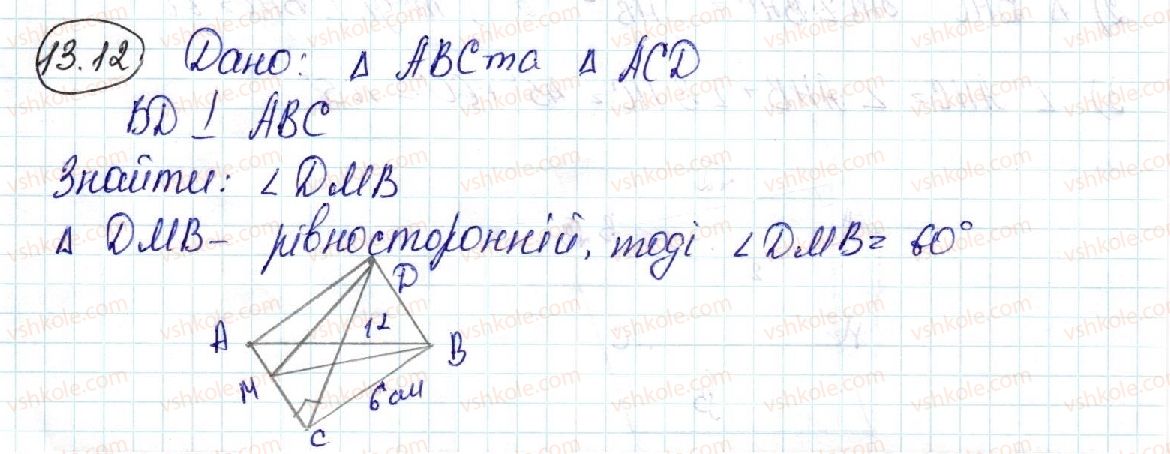 13.12 Дано: Δ ABC та Δ ACD
BD ⊥ ABC
Знайти: ∠DMB
Δ DMB – рівносторонній, тоді ∠DMB = 60°
D
A
12
B
M
6 см
C
vshkole.com